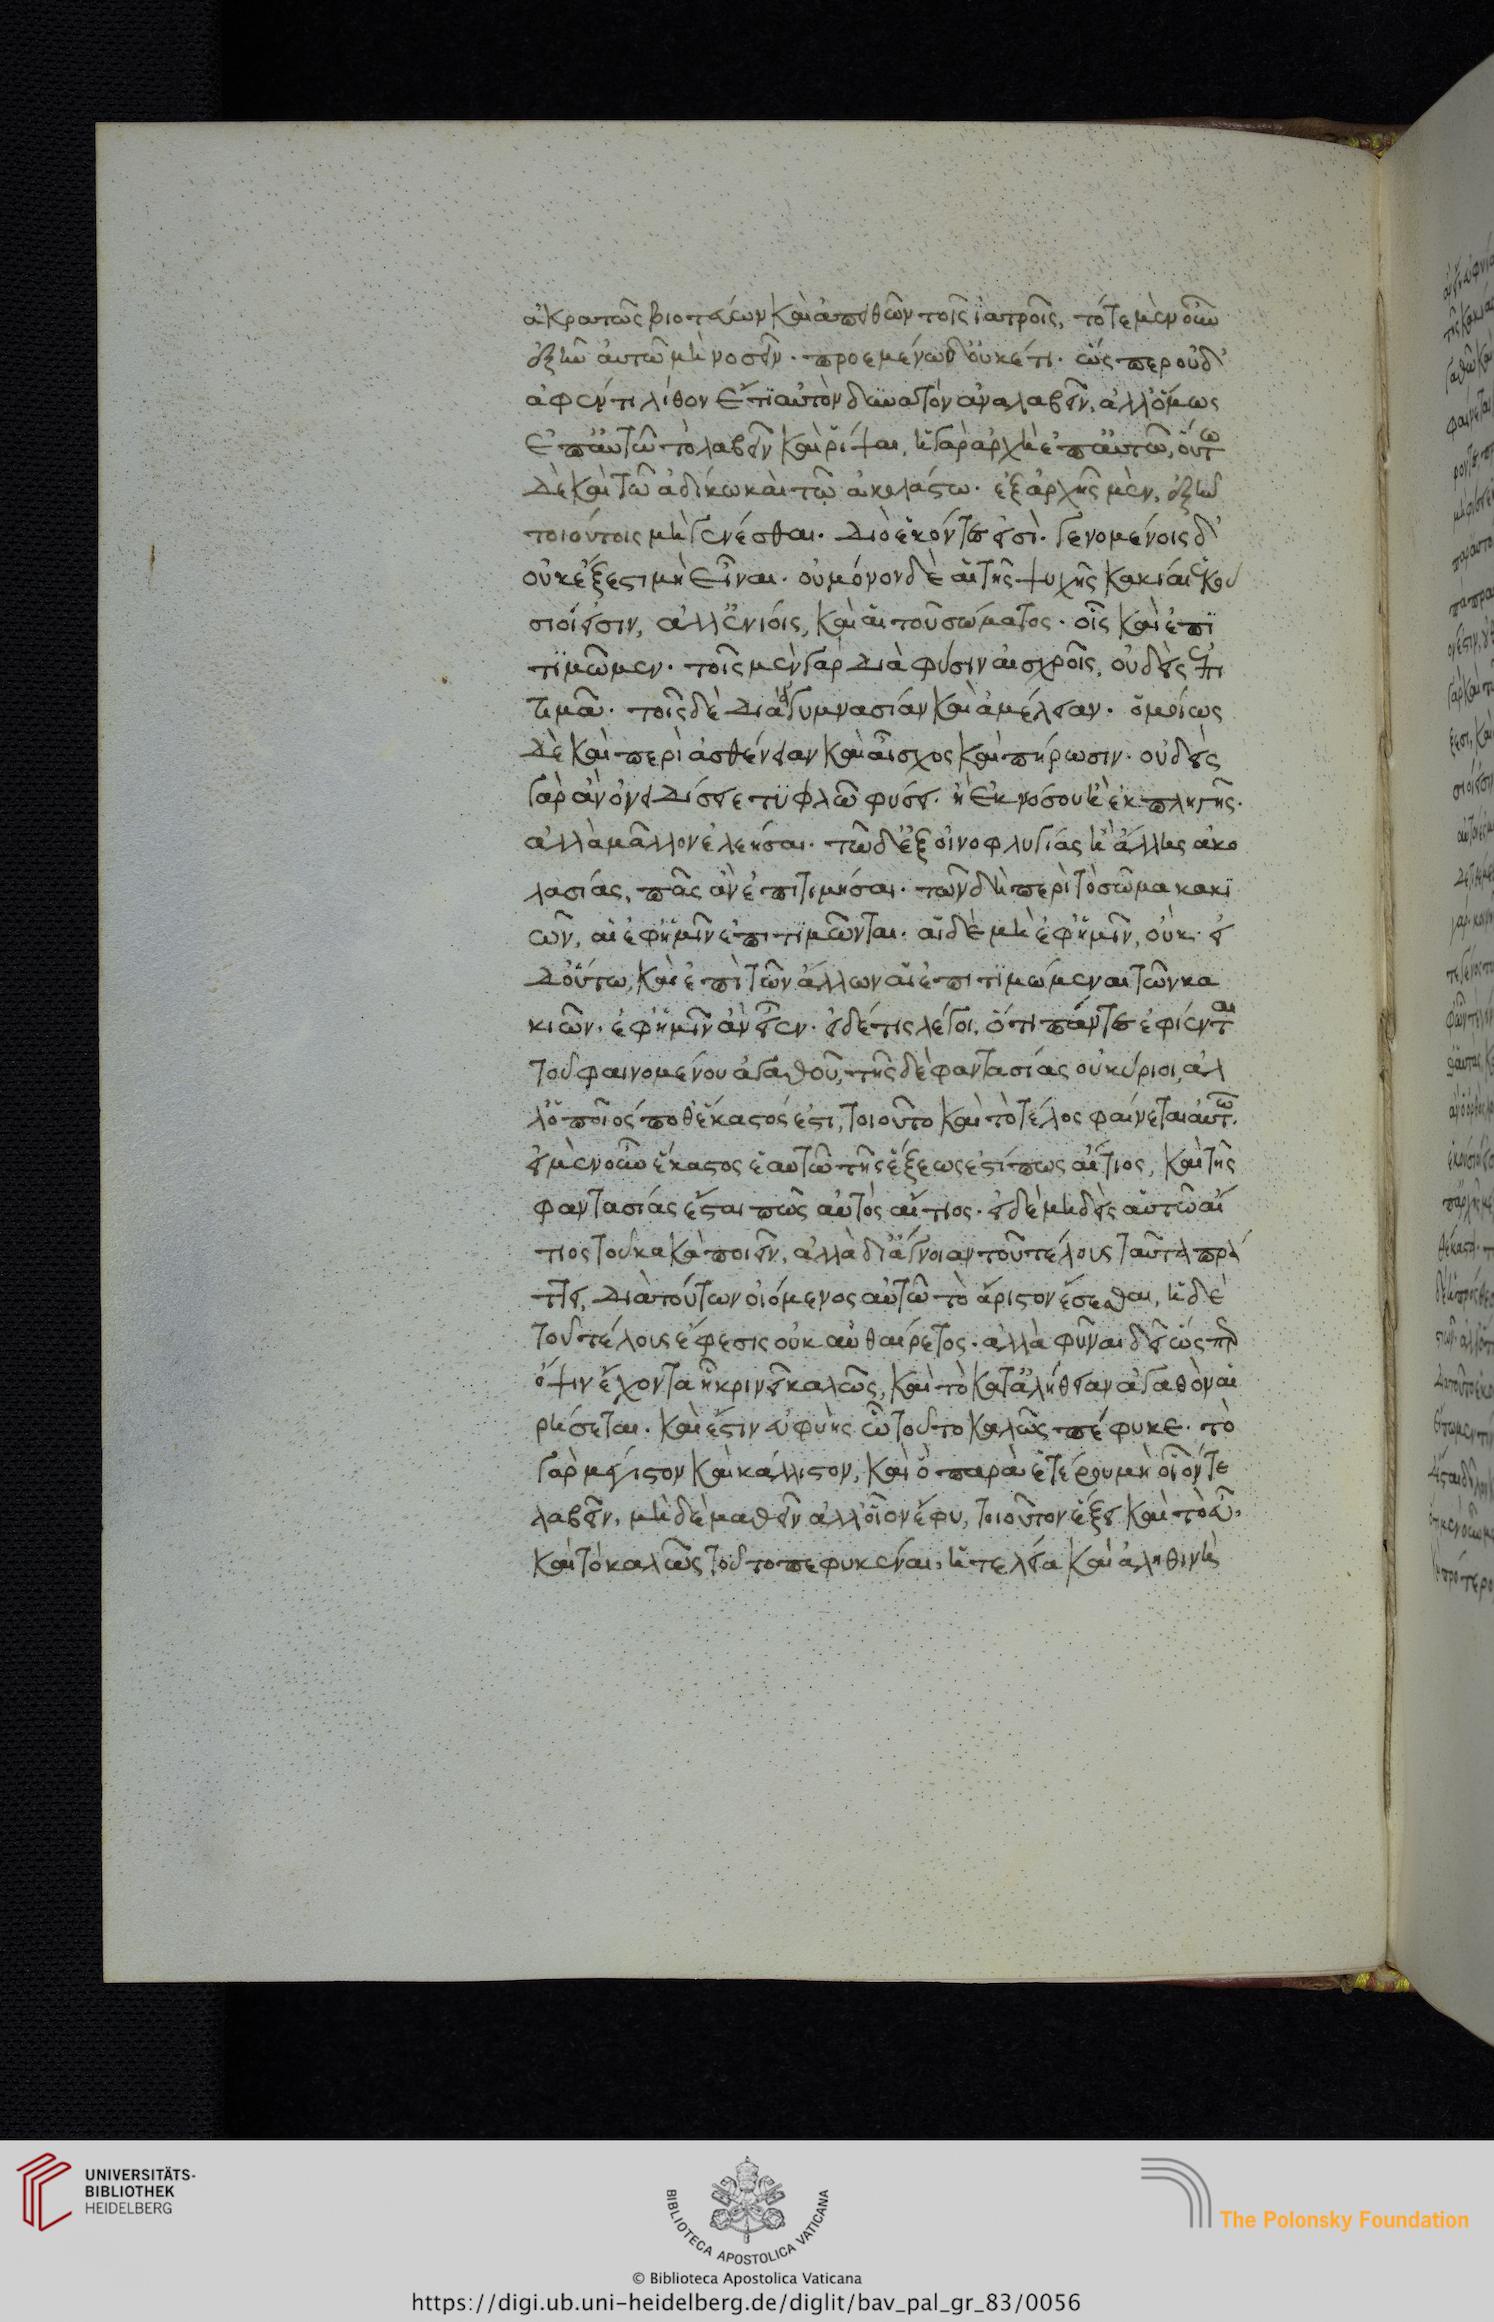 ἀκρατῶς βιοτεύων καὶ ἀπειθῶν τοῖς ἰατροῖς, τότε μὲν οὖν
ἐξῆν αὐτῷ μὴ νοσεῖν· προεμένῳ δ' οὐκέτι· ὥσπερ οὐδ'
ἀφέντι λίθον ἔτι αὐτὸν δυνατὸν ἀναλαβεῖν, ἀλλ' ὅμως
ἐπ' αὐτῷ τὸ λαβεῖν καὶ ῥίψαι, ἡ γὰρ ἀρχὴ ἐπ' αὐτῷ, οὕτω
δὲ καὶ τῷ ἀδίκῳ καὶ τῷ ἀκολάστῳ· ἐξ ἀρχῆς μὲν, ἐξῆν
τοιούτοις μὴ γενέσθαι· διὸ ἑκόντες εἰσί· γενομένοις δ'
οὐκ ἔξεστι μὴ εἶναι· οὐ μόνον δὲ αἱ τῆς ψυχῆς κακίαι ἑκού
σιοί εἰσιν, ἀλλ' ἐνίοις, καὶ αἱ τοῦ σώματος· οἷς καὶ ἐπι
τιμῶμεν· τοῖς μὲν γὰρ διὰ φύσιν αἰσχροῖς, οὐδεὶς ἐπι
τιμᾷ· τοῖς δὲ δι' ἀγυμνασίαν καὶ ἀμέλειαν· ὁμοίως
δὲ καὶ περὶ ἀσθένειαν καὶ αἶσχος καὶ πήρωσιν· οὐδεὶς
γὰρ ἂν ὀνειδίσειε τυφλῷ φύσει· ἢ ἐκ νόσου ἢ ἐκ πληγῆς·
ἀλλὰ μᾶλλον ἐλεήσαι· τῷ δ' ἐξ οἰνοφλυγίας ἢ ἄλλης ἀκο
λασίας, πᾶς ἂν ἐπιτιμήσαι· τῶν δὴ περὶ τὸ σῶμα κακι
ῶν, αἱ ἐφ' ἡμῖν ἐπιτιμῶνται· αἱ δὲ μὴ ἐφ' ἡμῖν, οὐκ· εἰ
δ' οὕτω, καὶ ἐπὶ τῶν ἄλλων αἱ ἐπιτιμώμεναι τῶν κα
κιῶν· ἐφ' ἡμῖν ἂν εἶεν· εἰ δέ τις λέγοι, ὅτι πάντες ἐφίενται
τοῦ φαινομένου ἀγαθοῦ, τῆς δὲ φαντασίας οὐ κύριοι, ἀλ
λ' ὁποῖός ποθ' ἕκαστός ἐστι, τοιοῦτο καὶ τὸ τέλος φαίνεται αὐτῷ·
εἰ μὲν οὖν ἕκαστος ἑαυτῷ τῆς ἕξεως ἐστί πως αἴτιος, καὶ τῆς
φαντασίας ἔσται πως αὐτὸς αἴτιος· εἰ δὲ μηδεὶς αὑτῷ αἴ
τιος τοῦ κακὰ ποιεῖν, ἀλλὰ δι' ἄγνοιαν τοῦ τέλους ταῦτα πρά
ττει, διὰ τούτων οἰόμενος αὑτῷ τὸ ἄριστον ἔσεσθαι, ἡ δὲ
τοῦ τέλους ἔφεσις οὐκ αὐθαίρετος· ἀλλὰ φῦναι δεῖ ὥσπερ
ὄψιν ἔχοντα ᾗ κρινεῖ καλῶς, καὶ τὸ κατ' ἀλήθειαν ἀγαθὸν αἱ
ρήσεται· καὶ ἔστιν εὐφυὴς ᾧ τοῦτο καλῶς πέφυκε· τὸ
γὰρ μέγιστον καὶ κάλλιστον, καὶ ὃ παρὰ ἑτέρου μὴ οἷόν τε
λαβεῖν, μηδὲ μαθεῖν ἀλλ' οἷον ἔφυ, τοιοῦτον ἕξει καὶ τὸ εὖ,
καὶ τὸ καλῶς τοῦτο πεφυκέναι, ἡ τελεία καὶ ἀληθινὴ
UNIVERSITÄTS-
BIBLIOTHEK
HEIDELBERG
BIBLIOTECA APOSTOLICA VATICANA
The Polonsky Foundation
© Biblioteca Apostolica Vaticana
https://digi.ub.uni-heidelberg.de/diglit/bav_pal_gr_83/0056